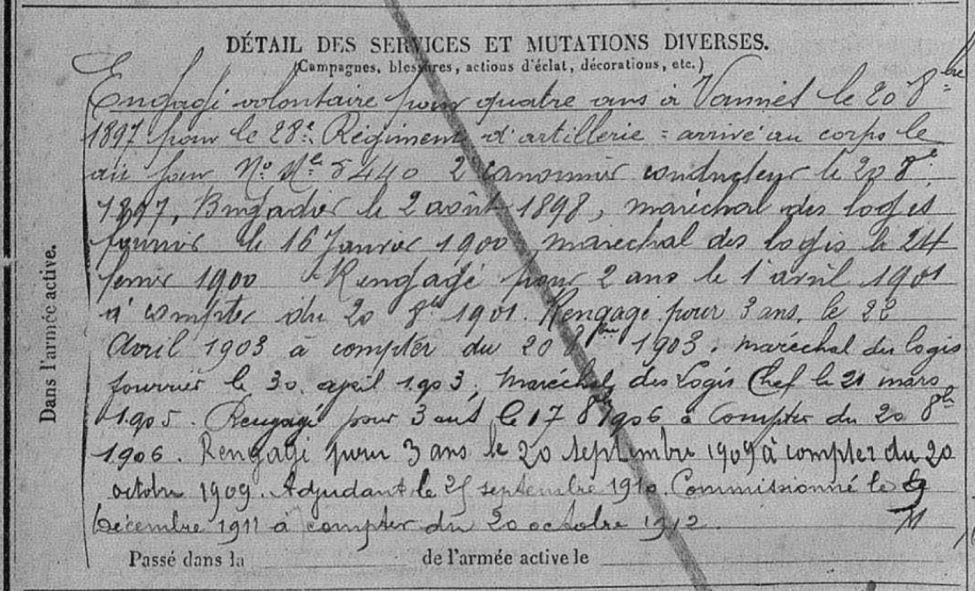 DÉTAIL DES SERVICES ET MUTATIONS DIVERSES.
(Campagnes, blessures, actions d'éclat, décorations, etc.)
Engagé volontaire pour quatre ans à Vannes le 20 8bre
1897 pour le 28e Régiment d'artillerie = arrivé au corps le
dit jour No Mle 5440 2e canonnier conducteur le 20 8e
1897, Brigadier le 2 août 1898, maréchal des logis
fourrier le 16 Janvier 1900 maréchal des logis le 24
fevrier 1900 Rengagé pour 2 ans le 1er avril 1901
à compter du 20 8bre 1901. Rengagé pour 3 ans, le 22
Avril 1903 à compter du 20 8bre 1903. maréchal des logis
fourrier le 30 april 1903, Maréchal des Logis Chef le 21 mars
1905. Rengagé pour 3 ans le 17 8bre 1906 à compter du 20 8bre
1906. Rengagé pour 3 ans le 20 septembre 1909 à compter du 20
octobre 1909. Adjudant le 25 septembre 1910. Commissionné le 9
Décembre 1911 à compter du 20 octobre 1912.
Dans l'armée active.
Passé dans la de l'armée active le